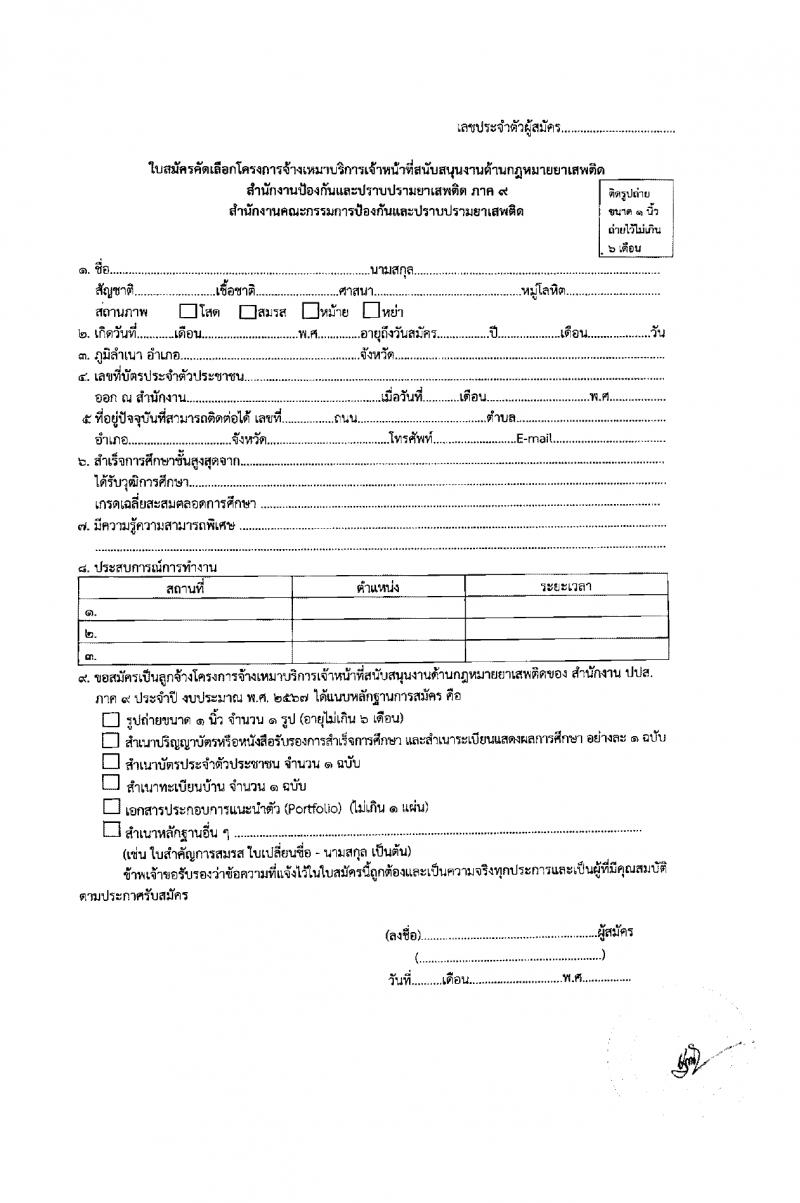 เลขประจำตัวผู้สมัคร....................................
ใบสมัครคัดเลือกโครงการจ้างเหมาบริการเจ้าหน้าที่สนับสนุนงานด้านกฎหมายยาเสพติด
สำนักงานป้องกันและปราบปรามยาเสพติด ภาค ๙
สำนักงานคณะกรรมการป้องกันและปราบปรามยาเสพติด
ติดรูปถ่าย
ขนาด ๑ นิ้ว
ถ่ายไว้ไม่เกิน
๖ เดือน
๑. ชื่อ....................................นามสกุล....................................
สัญชาติ....................เชื้อชาติ....................ศาสนา....................................หมู่โลหิต....................
สถานภาพ ☐โสด ☐สมรส ☐หม้าย ☐หย่า
๒. เกิดวันที่............เดือน....................พ.ศ.............อายุถึงวันสมัคร................ปี................เดือน................วัน
๓. ภูมิลำเนา อำเภอ....................................จังหวัด....................................
๔. เลขที่บัตรประจำตัวประชาชน....................................
ออก ณ สำนักงาน....................................เมื่อวันที่............เดือน....................พ.ศ................
๕ ที่อยู่ปัจจุบันที่สามารถติดต่อได้ เลขที่................ถนน....................ตำบล....................
อำเภอ....................จังหวัด....................โทรศัพท์....................E-mail....................
๖. สำเร็จการศึกษาชั้นสูงสุดจาก....................................
ได้รับวุฒิการศึกษา....................................
เกรดเฉลี่ยสะสมตลอดการศึกษา ....................................
๗. มีความรู้ความสามารถพิเศษ ....................................
....................................
๘. ประสบการณ์การทำงาน
สถานที่ ตำแหน่ง ระยะเวลา
๑.
๒.
๓.
๙. ขอสมัครเป็นลูกจ้างโครงการจ้างเหมาบริการเจ้าหน้าที่สนับสนุนงานด้านกฎหมายยาเสพติดของ สำนักงาน ปปส.
ภาค ๙ ประจำปี งบประมาณ พ.ศ. ๒๕๖๗ ได้แนบหลักฐานการสมัคร คือ
☐ รูปถ่ายขนาด ๑ นิ้ว จำนวน ๑ รูป (อายุไม่เกิน ๖ เดือน)
☐ สำเนาปริญญาบัตรหรือหนังสือรับรองการสำเร็จการศึกษา และสำเนาระเบียนแสดงผลการศึกษา อย่างละ ๑ ฉบับ
☐ สำเนาบัตรประจำตัวประชาชน จำนวน ๑ ฉบับ
☐ สำเนาทะเบียนบ้าน จำนวน ๑ ฉบับ
☐ เอกสารประกอบการแนะนำตัว (Portfolio) (ไม่เกิน ๑ แผ่น)
☐ สำเนาหลักฐานอื่น ๆ ....................................
(เช่น ใบสำคัญการสมรส ใบเปลี่ยนชื่อ - นามสกุล เป็นต้น)
ข้าพเจ้าขอรับรองว่าข้อความที่แจ้งไว้ในใบสมัครนี้ถูกต้องและเป็นความจริงทุกประการและเป็นผู้ที่มีคุณสมบัติ
ตามประกาศรับสมัคร
(ลงชื่อ)....................................ผู้สมัคร
(....................................)
วันที่..........เดือน....................พ.ศ................